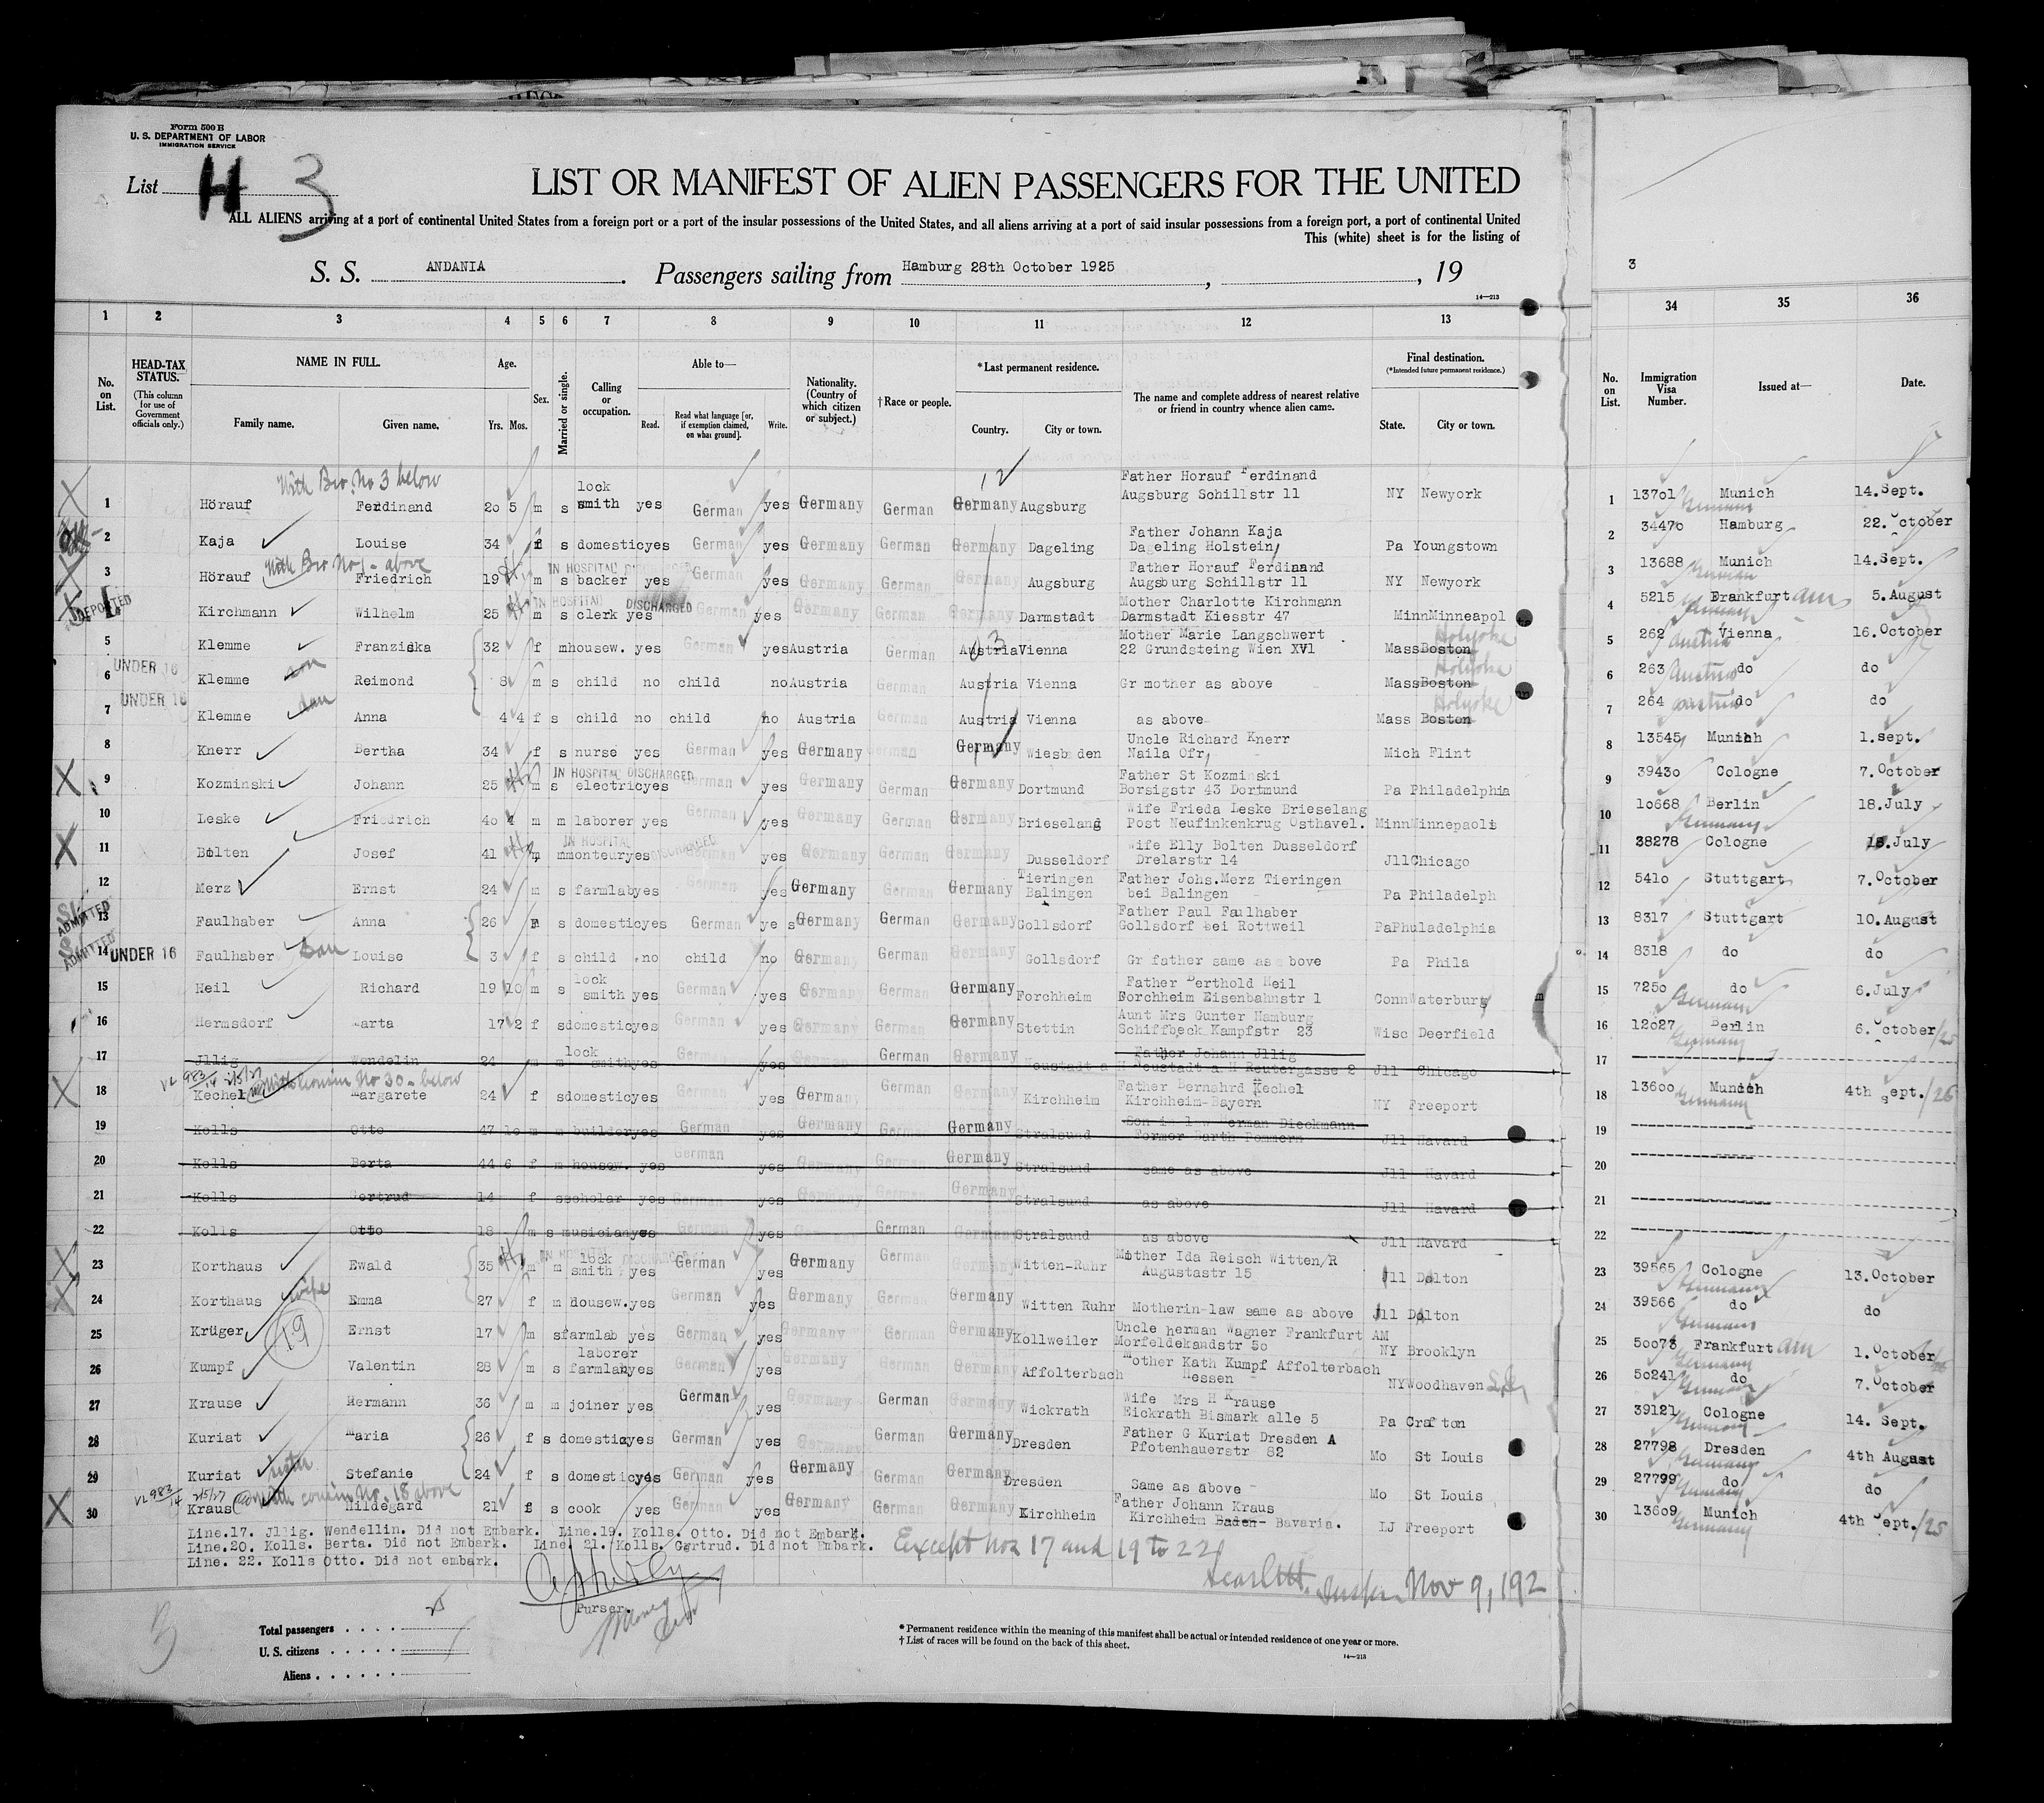 Form 500 B
U. S. DEPARTMENT OF LABOR
IMMIGRATION SERVICE
List H 3
LIST OR MANIFEST OF ALIEN PASSENGERS FOR THE UNITED
ALL ALIENS arriving at a port of continental United States from a foreign port or a port of the insular possessions of the United States, and all aliens arriving at a port of said insular possessions from a foreign port, a port of continental United
This (white) sheet is for the listing of
S. S. ANDANIA. Passengers sailing from Hamburg 28th October 1925, , 19
14—213
3
1 2 3 4 5 6 7 8 9 10 11 12 13 34 35 36
No. on List. HEAD-TAX STATUS. (This column for use of Government officials only.) NAME IN FULL. Family name. Given name. Age. Yrs. Mos. Sex. Married or single. Calling or occupation. Able to— Read. Read what language [or, if exemption claimed, on what ground]. Write. Nationality. (Country of which citizen or subject.) † Race or people. * Last permanent residence. Country. City or town. The name and complete address of nearest relative or friend in country whence alien came. Final destination. (* Intended future permanent residence.) State. City or town. No. on List. Immigration Visa Number. Issued at— Date.
With Bro. No 3 below
1 Hörauf Ferdinand 20 5 m s lock smith yes German yes Germany German Germany Augsburg Father Horauf Ferdinand Augsburg Schillstr 11 NY Newyork 1 13701 Germany Munich 14.Sept.
2 Kaja Louise 34 f s domestic yes German yes Germany German Germany Dageling Father Johann Kaja Dageling Holstein, Pa Youngstown 2 34470 Hamburg 22.October
With Bro No 1 - above
3 Hörauf Friedrich 19 m s backer yes German yes Germany German Germany Augsburg Father Horauf Ferdinand Augsburg Schillstr 11 NY Newyork 3 13688 German Munich 14.Sept.
IN HOSPITAL DISCHARGED
DEPORTED 4 Kirchmann Wilhelm 25 m s clerk yes German yes Germany German Germany Darmstadt Mother Charlotte Kirchmann Darmstadt Kiesstr 47 Minn Minneapol 4 5215 Germany Frankfurt am 5.August
IN HOSPITAL DISCHARGED
5 Klemme Franziska 32 f m housew. yes German yes Austria German Austria Vienna Mother Marie Langschwert 22 Grundsteing Wien XVl Mass Boston Holyoke 5 262 Austria Vienna 16.October
UNDER 16 6 Klemme son Reimond 8 m s child no child no Austria German Austria Vienna Gr mother as above Mass Boston Holyoke 6 263 Austria do do
UNDER 16 7 Klemme dau Anna 4 4 f s child no child no Austria German Austria Vienna as above Mass Boston Holyoke 7 264 Austria do do
8 Knerr Bertha 34 f s nurse yes German yes Germany German Germany Wiesbaden Uncle Richard Knerr Naila Ofr, Mich Flint 8 13545 Munich 1.sept.
9 Kozminski Johann 25 m s electric yes German yes Germany German Germany Dortmund Father St Kozminski Borsigstr 43 Dortmund Pa Philadelphia 9 39430 Cologne 7.October
IN HOSPITAL DISCHARGED
10 Leske Friedrich 40 4 m m laborer yes German yes Germany German Germany Brieseland Wife Frieda Leske Brieselang Post Neufinkenkrug Osthavel. Minn Minnepaoli 10 10668 Germany Berlin 18.July
11 Bolten Josef 41 m m monteur yes German yes Germany German Germany Dusseldorf Wife Elly Bolten Dusseldorf Drelarstr 14 Jll Chicago 11 38278 Cologne 18.July
IN HOSPITAL DISCHARGED
12 Merz Ernst 24 m s farmlab yes German yes Germany German Germany Tieringen Balingen Father Johs.Merz Tieringen bei Balingen Pa Philadelph 12 5410 Stuttgart 7.October
ADMITTED 13 Faulhaber Anna 26 F s domestic yes German yes Germany German Germany Gollsdorf Father Paul Faulhaber Gollsdorf bei Rottweil Pa Phuladelphia 13 8317 Stuttgart 10.August
ADMITTED 14 UNDER 16 Faulhaber Dau Louise 3 f s child no child no Germany German Germany Gollsdorf Gr father same as above Pa Phila 14 8318 do do
15 Heil Richard 19 10 m s lock smith yes German yes Germany German Germany Forchheim Father Berthold Heil Forchheim Eisenbahnstr 1 Conn Waterburg 15 7250 Germany do 6.July
16 Hermsdorf Marta 17 2 f s domestic yes German yes Germany German Germany Stettin Aunt Mrs Gunter Hamburg Schiffbeck Kampfstr 23 Wisc Deerfield 16 12027 Germany Berlin 6.October/25
17 Jllig Wendelin 24 m m lock smith yes German yes Germany German Germany Neustadt a H Father Johann Jllig Neustadt a H Reutergasse 2 Jll Chicago 17
V2 983/14 2/5/27 With Cousin No 30 - below
18 Kechel Margarete 24 f s domestic yes German yes Germany German Germany Kirchheim Father Bernahrd Kechel Kirchheim-Bayern NY Freeport 18 13600 Germany Munich 4th sept./25
19 Kolls Otto 47 10 m m builder yes German yes Germany German Germany Stralsund Son in l w Herman Dieckmann Former Barth Pommern Jll Havard 19
20 Kolls Berta 44 6 f m housew. yes German yes Germany German Germany Stralsund same as above Jll Havard 20
21 Kolls Gertrud 14 f s scholar yes German yes Germany German Germany Stralsund as above Jll Havard 21
22 Kolls Otto 18 m s musician yes German yes Germany German Germany Stralsund as above Jll Havard 22
23 Korthaus Ewald 35 m m lock smith yes German yes Germany German Germany Witten-Ruhr Mother Ida Reisch Witten/R Augustastr 15 Jll Dolton 23 39565 Germany Cologne 13.October
IN HOSPITAL DISCHARGED
24 Korthaus wife Emma 27 f m dousew. yes German yes Germany German Germany Witten Ruhr Motherin-law same as above Jll Dolton 24 39566 Germany do do
25 Krüger Ernst 17 m s farmlab yes German yes Germany German Germany Kollweiler Uncle herman Wagner Frankfurt AM Morfeldekandstr 50 NY Brooklyn 25 50073 Germany Frankfurt am 1.October
19
26 Kumpf Valentin 28 m s laborer farmlab yes German yes Germany German Germany Affolterbach Mother Kath Kumpf Affolterbach Hessen NY Woodhaven 26 50241 Germany do 7.October
27 Krause Hermann 36 m m joiner yes German yes Germany German Germany Wickrath Wife Mrs H Krause Eickrath Bismark alle 5 Pa Crafton 27 39121 Germany Cologne 14. Sept.
28 Kuriat Maria 26 f s domestic yes German yes Germany German Germany Dresden Father G Kuriat Dresden A Pfotenhauerstr 82 Mo St Louis 28 27798 Germany Dresden 4th August
29 Kuriat sister Stefanie 24 f s domestic yes German yes Germany German Germany Dresden Same as above Mo St Louis 29 27799 Germany do do
V2 983/14 2/5/27 with cousin No. 18 above
30 Kraus Hildegard 21 f s cook yes German yes Germany German Germany Kirchheim Father Johann Kraus Kirchheim Baden- Bavaria. LJ Freeport 30 13609 Germany Munich 4th sept./25
Line.17. Jllig. Wendellin. Did not Embark. Line.19. Kolls. Otto. Did not Embark.
Line.20. Kolls. Berta. Did not Embark. Line. 21. Kolls. Gertrud. Did not Embark.
Line. 22. Kolls Otto. Did not embark.
Except Nos 17 and 19 to 22
Nov 9, 192
Purser.
Total passengers
U. S. citizens
Aliens
* Permanent residence within the meaning of this manifest shall be actual or intended residence of one year or more.
† List of races will be found on the back of this sheet.
14—213